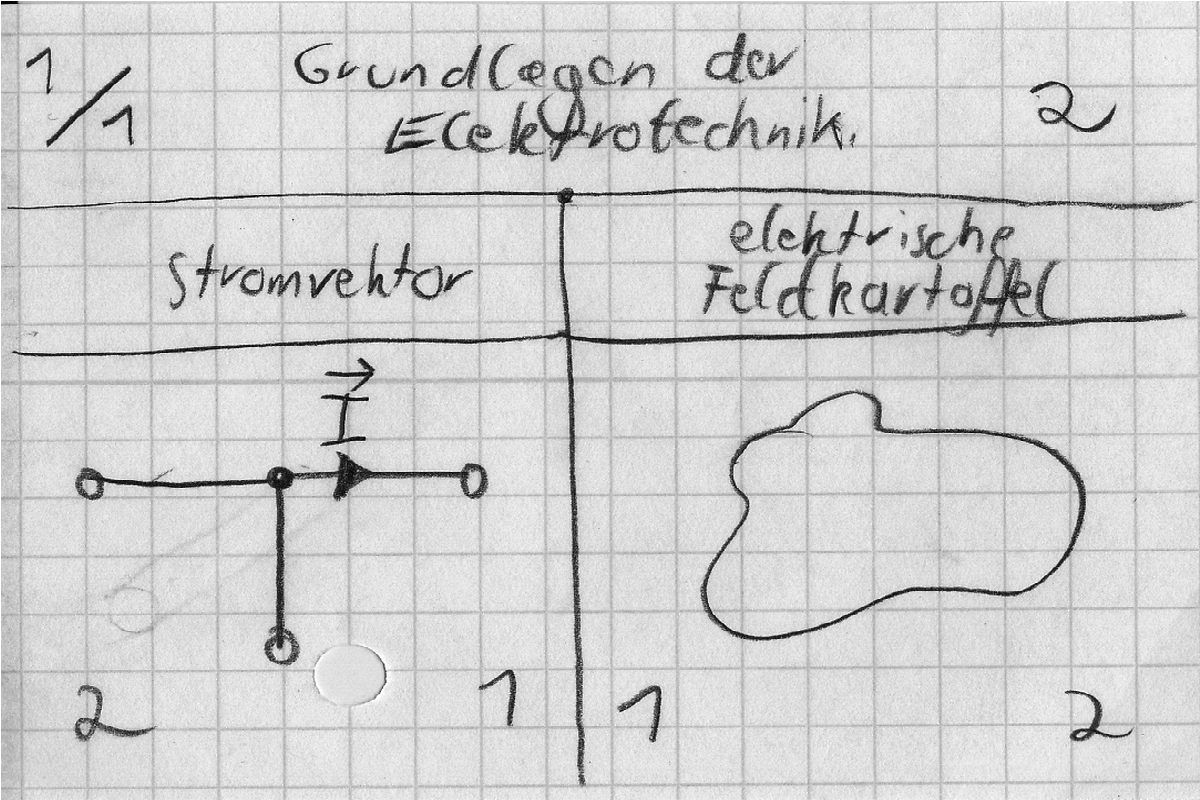 1/1
Grundlagen der
Elektrotechnik.
2
Stromvektor
elektrische
Feldkartoffel
I
2
1
1
2